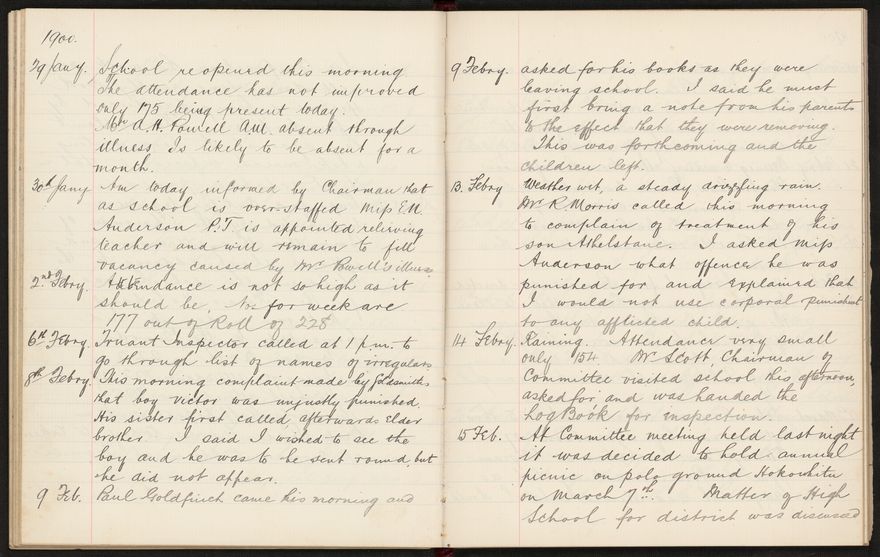 1900.
29 Jany. School re opened this morning
The attendance has not improved
only 175 being present today.
Mr A.H. Powell Ast. absent through
illness Is likely to be absent for a
month.
30th Jany Am today informed by Chairman that
as school is over-staffed Miss E.M.
Anderson P.T. is appointed relieving
teacher and will remain to fill
vacancy caused by Mr Powell's illness
2nd Febry. Attendance is not so high as it
should be. Nos for week are
177 out of Roll of 228
6th Febry. Truant Inspector called at 1 p.m. to
go through list of names of irregulars
8th Febry. This morning complaint made by Goldsmiths
that boy Victor was unjustly punished.
His sister first called, afterwards Elder
brother. I said I wished to see the
boy and he was to be sent round, but
he did not appear.
9 Feb. Paul Goldfinch came his morning and
9 Febry. asked for his books as they were
leaving school. I said he must
first bring a note from his parents
to the effect that they were removing.
This was forthcoming and the
children left.
13. Febry Weather wet, a steady drizzling rain.
Mr. R. Morris called this morning
to complain of treatment of his
son Athelstane. I asked Miss
Anderson what offence he was
punished for and explained that
I would not use corporal punishment
to any afflicted child.
14 Febry. Raining. Attendance very small
only 154 Mr Scott, Chairman of
Committee visited school this afternoon,
asked for and was handed the
Log Book for inspection.
15 Feb. At Committee meeting held last night
it was decided to hold annual
picnic on polo ground Hokowhitu
on March 7th. Matter of High
School for district was discussed